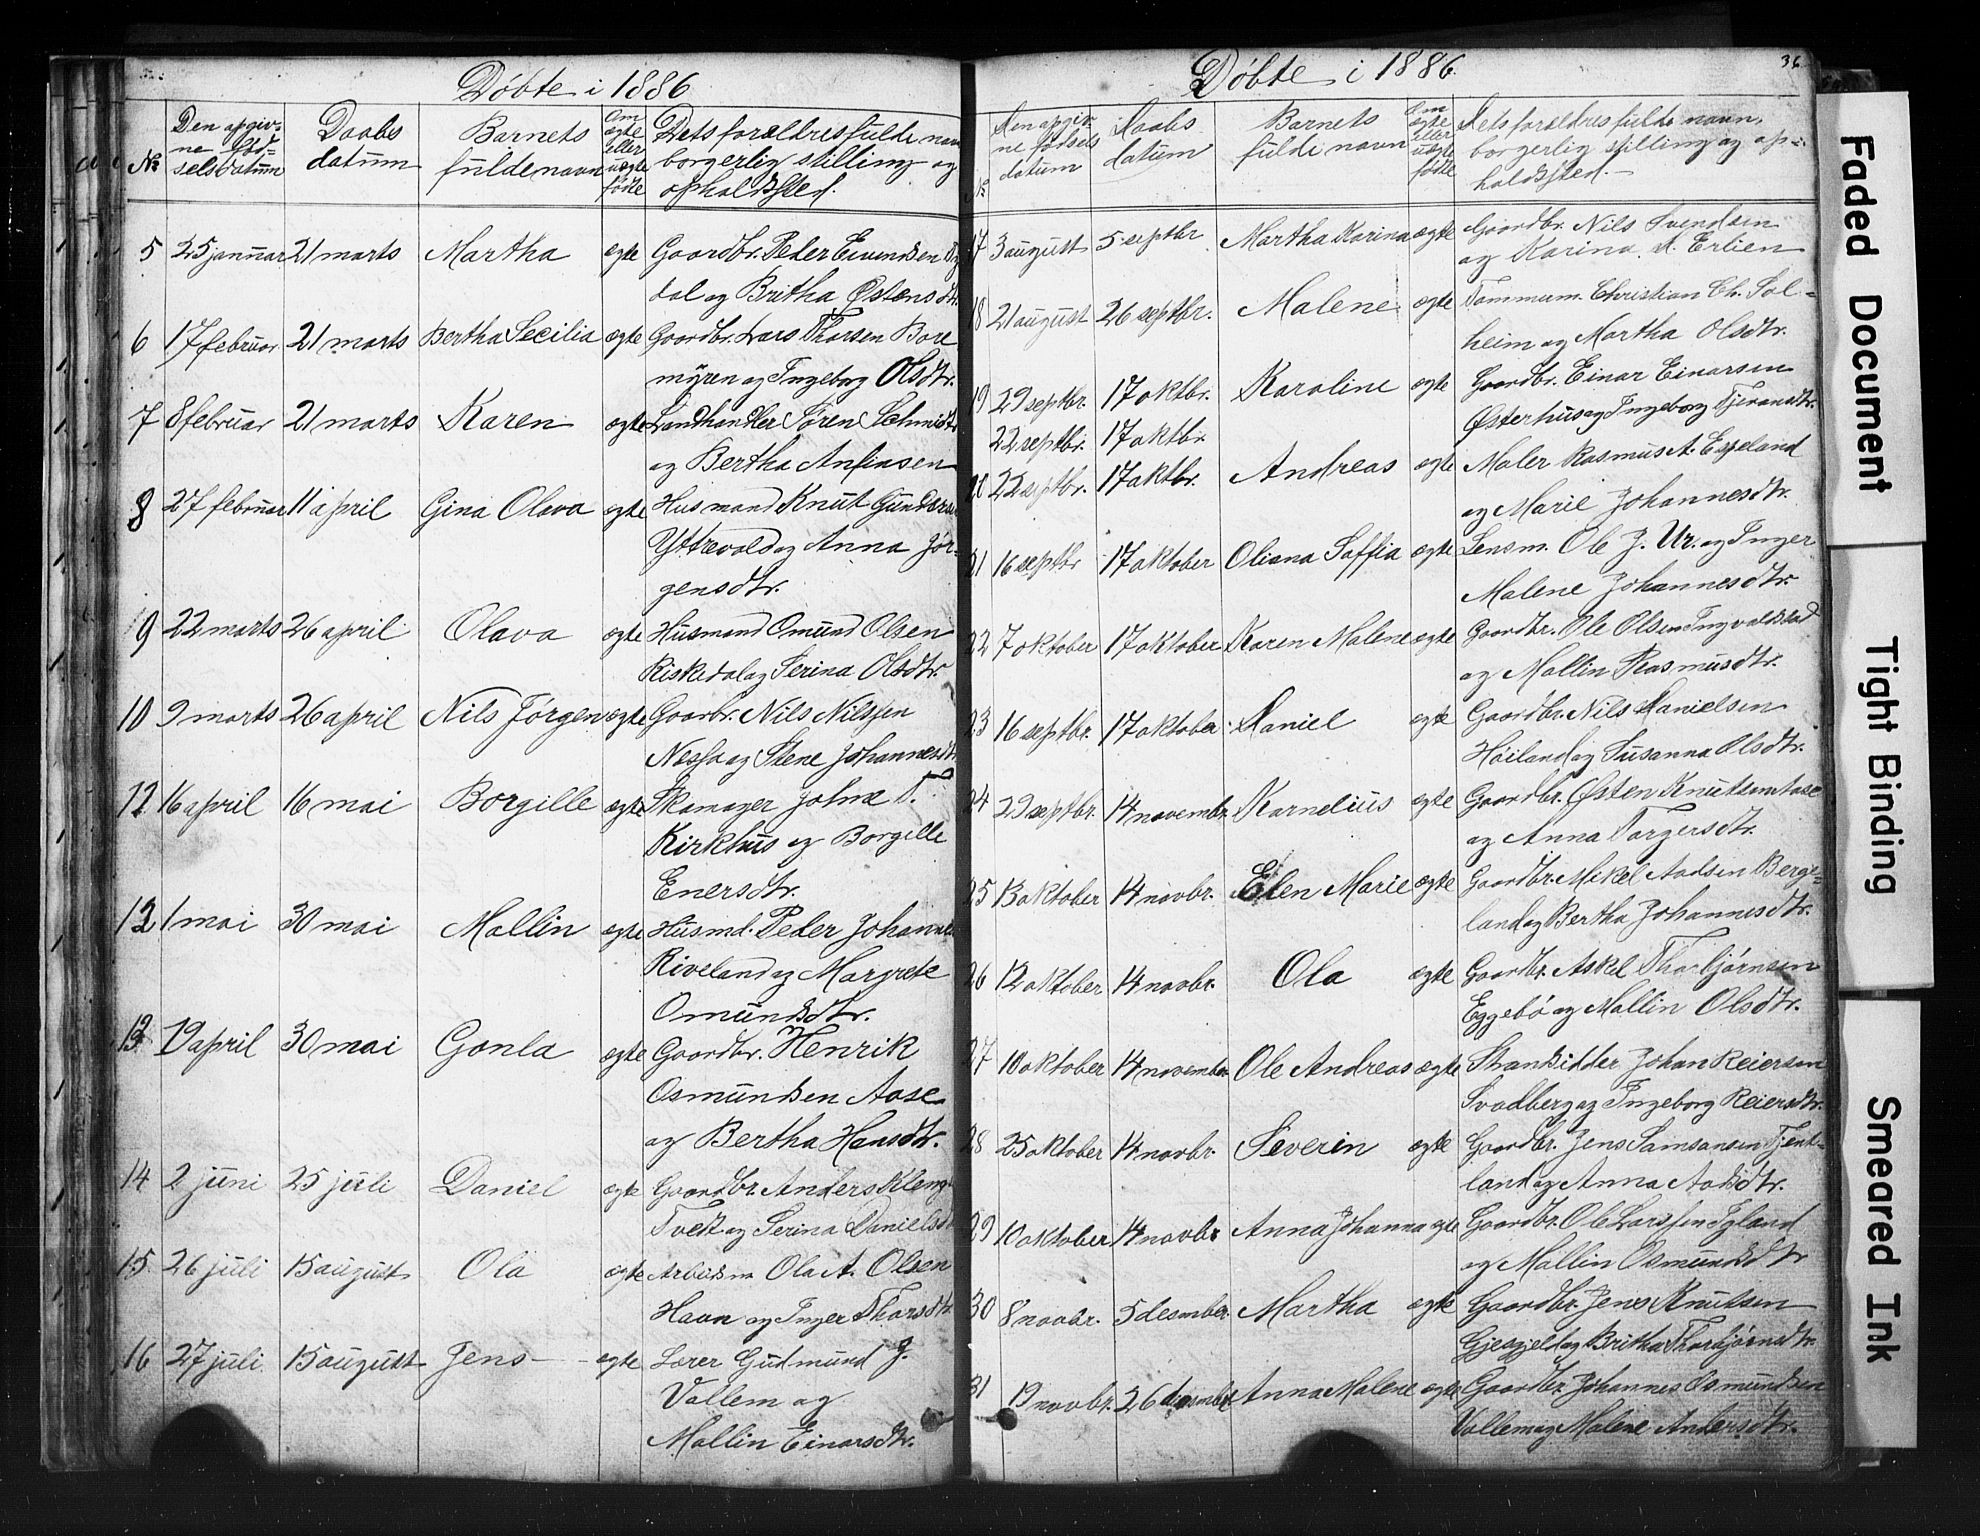 Döbte i 1886
No
Den opgiv-
ne fød-
selsdatum
Daabs
datum
Barnets
fulde navn
Om
ægte
eller
uægte
fødte
Dets forældres fulde navn
borgerlig stilling og
opholdssted.
5 25 januar 21 marts Martha ægte Gaardbr. Peder Eivendsen
dal og Britha Østensdtr.
6 17 februar 21 marts Bertha Secilia ægte Gaardbr. Lars Thorsen Bore
myren og Ingeborg Olsdtr.
7 8 februar 21 marts Karen ægte Landhandler Sören Schmidt
og Bertha Anfinsen
8 27 februar 11 april Gina Olava ægte Husmand Knut Gunders
Yttrevold og Anna Jör-
gensdtr.
9 22 marts 26 april Olava ægte Husmand Omund Olsen
Riskedal og Serina Olsdtr.
10 9 marts 26 april Nils Jørgen ægte Gaarbr. Nils Nilssen
Nessa og Stene Johannesdtr
11 16 april 16 mai Borgille ægte Skomager John T.
Kirkhus og Borgille
Enersdtr.
12 1 mai 30 mai Mallin ægte Husmd. Peder Johann
Riveland og Margrete
Omundsdtr.
13 19 april 30 mai Gonla ægte Gaardbr. Henrik
Osmundsen Aase
og Bertha Hansdtr.
14 2 juni 25 juli Daniel ægte Gaardbr. Anders Kleng
Tveit og Serina Danielsd
15 26 juli 15 august Ola ægte Arbeidsm Ola A. Olsen
Haun og Inger Thorsdtr
16 27 juli 15 august Jens ægte Lærer Gudmund J.
Vallem og
Mallin Einarsdtr.
Döbte i 1886.
36
No
Den opgiv-
ne fødsels
datum
Daabs
datum
Barnets
fulde navn
Om
ægte
eller
uægte
fødte
Dets forældres fulde navn,
borgerlig stilling og op-
holdssted.
17 3 august 5 septbr Martha Karina ægte Gaardbr. Nils Svendsen
og Karina A. Erlien
18 21 august 26 septbr. Malene ægte Tømmerm. Christian Ch. Sol-
heim og Martha Olsdtr.
19 29 septbr. 17 oktbr. Karoline ægte Gaardbr. Einar Einarsen
Østerhus og Ingeborg Tjeransdtr.
22 septbr. 17 oktbr.
20 22 septbr. 17 oktbr. Andreas ægte Maler Rasmus A. Espeland
og Marie Johannesdtr.
21 16 septbr 17 oktober Oliana Soffia ægte Lensm. Ole J. Ur. og Inger
Malene Johannesdtr.
22 7 oktober 17 oktober Karen Malene ægte Gaardbr. Ole Olsen Ingvaldstad
og Mallin Rasmusdtr.
23 16 septbr. 17 oktober Daniel ægte Gaardbr. Nils Danielsen
Høiland og Susanna Olsdtr.
24 29 septbr. 14 novembr. Karnelius ægte Gaardbr. Østen Knutsen Aase
og Anna Torgersdtr.
25 13 oktober 14 novbr. Elen Marie ægte Gaardbr. Mikel Aadsen Berge-
land og Bertha Johannesdtr.
26 12 oktober 14 novbr. Ola ægte Gaardbr. Askel Thorbjørnsen
Eggebö og Mallin Olsdtr.
27 10 oktober 14 november Ole Andreas ægte Strandsidder Johan Reiersen
Svadberg og Ingeborg Reiersdtr.
28 25 oktober 14 novbr. Severin ægte Gaardbr. Jens Samsonsen Tjent-
land og Anna Aadsdtr.
29 10 oktober 14 novbr Anna Johanna ægte Gaardbr. Ole Larssen Tgland
og Mallin Osmundsdtr
30 8 novbr. 5 desmber Martha ægte Gaardbr. Jens Knutsen
Gjesgjeld og Britha Thorbjørnsdtr.
31 19 novbr. 26 desmber Anna Malene ægte Gaardbr. Johannes Osmundsen
Vallem og Malene Andersdtr.
Faded Document
Tight Binding
Smeared Ink